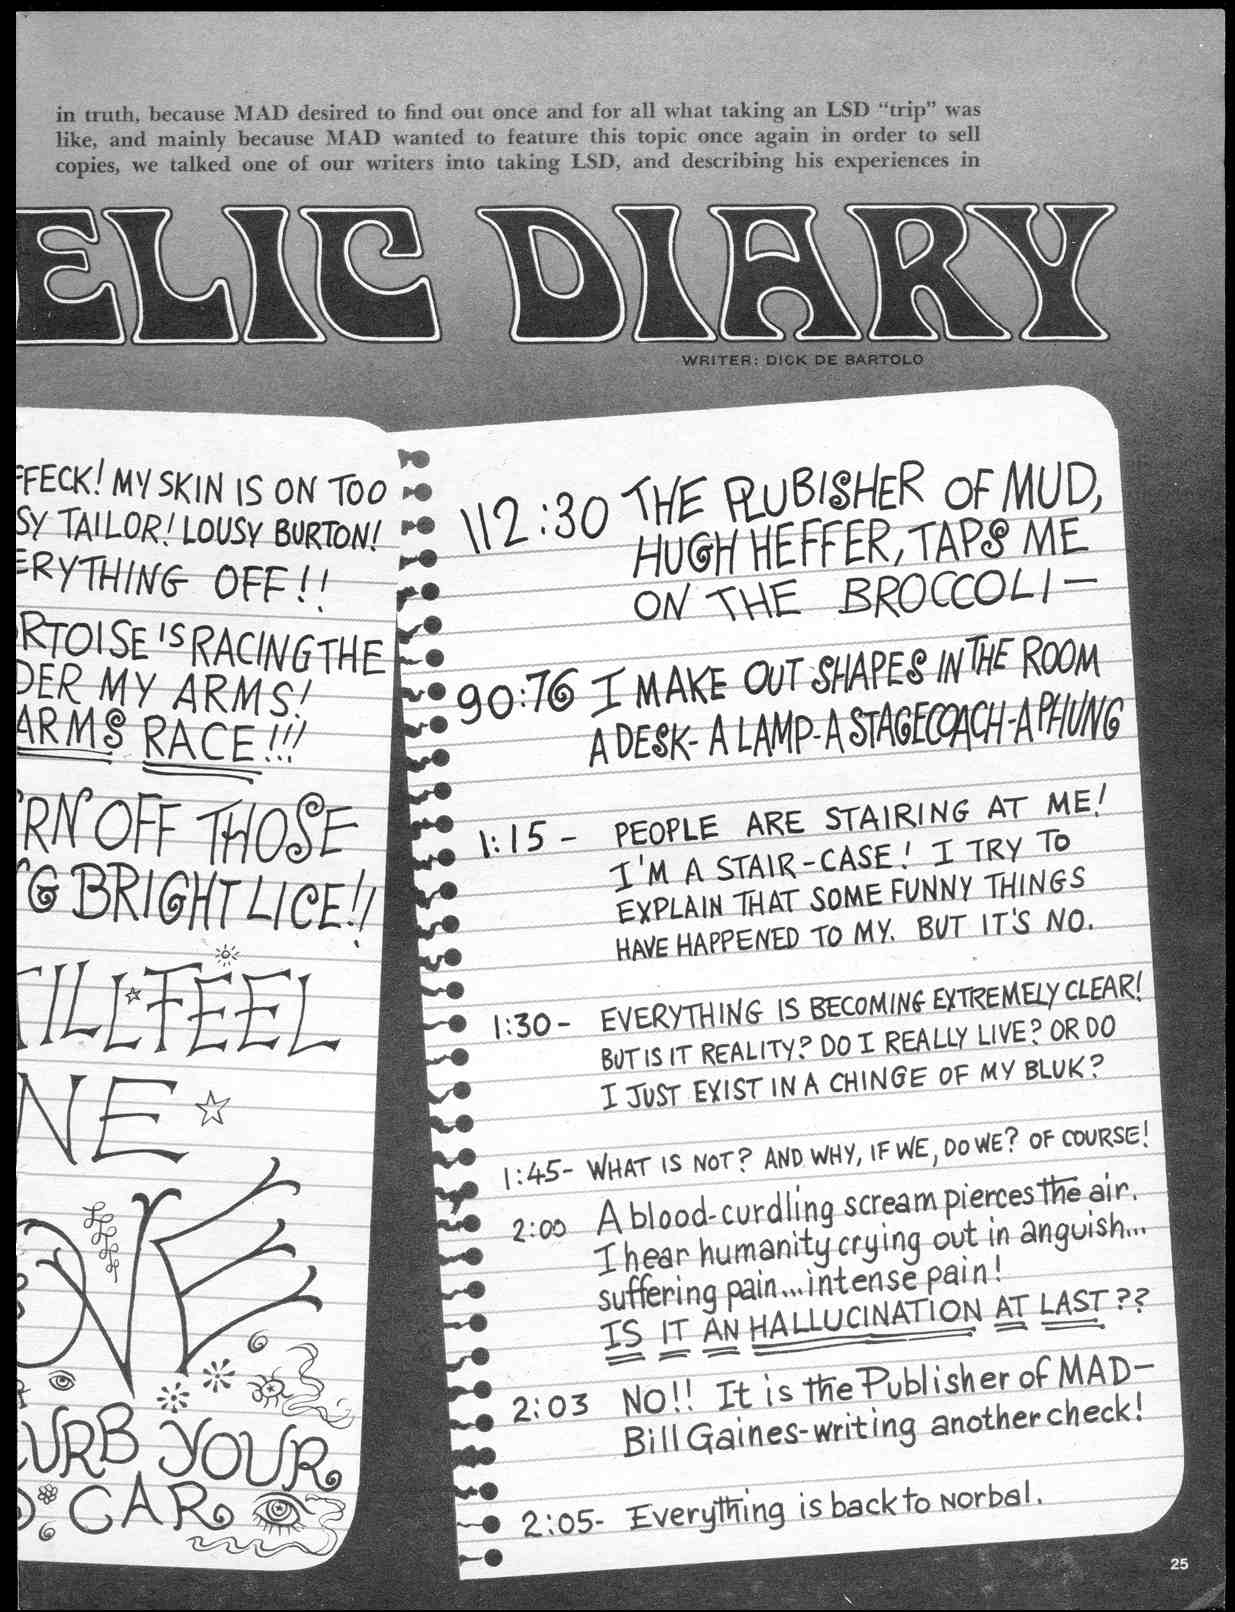 in truth, because MAD desired to find out once and for all what taking an LSD “trip” was
like, and mainly because MAD wanted to feature this topic once again in order to sell
copies, we talked one of our writers into taking LSD, and describing his experiences in
ELIC DIARY
WRITER: DICK DE BARTOLO
FFECK! MY SKIN IS ON TOO
SY TAILOR! LOUSY BURTON!
ERYTHING OFF!!
RTOISE IS RACING THE
DER MY ARMS!
ARMS RACE!!!
RN OFF THOSE
G BRIGHT LICE!!
TILL FEEL
NE
OVE
URB YOUR
CAR
112:30 THE PLUBISHER OF MUD,
HUGH HEFFER, TAPS ME
ON THE BROCCOLI—
90:76 I MAKE OUT SHAPES IN THE ROOM
A DESK- A LAMP- A STAGECOACH-A PHUNG
1:15 - PEOPLE ARE STAIRING AT ME!
I'M A STAIR-CASE! I TRY TO
EXPLAIN THAT SOME FUNNY THINGS
HAVE HAPPENED TO MY. BUT IT'S NO.
1:30 - EVERYTHING IS BECOMING EXTREMELY CLEAR!
BUT IS IT REALITY? DO I REALLY LIVE? OR DO
I JUST EXIST IN A CHINGE OF MY BLUK?
1:45- WHAT IS NOT? AND WHY, IF WE, DO WE? OF COURSE!
2:00 A blood-curdling scream pierces the air.
I hear humanity crying out in anguish...
suffering pain...intense pain!
IS IT AN HALLUCINATION AT LAST??
2:03 NO!! It is the Publisher of MAD—
Bill Gaines-writing another check!
2:05- Everything is back to norbal.
25